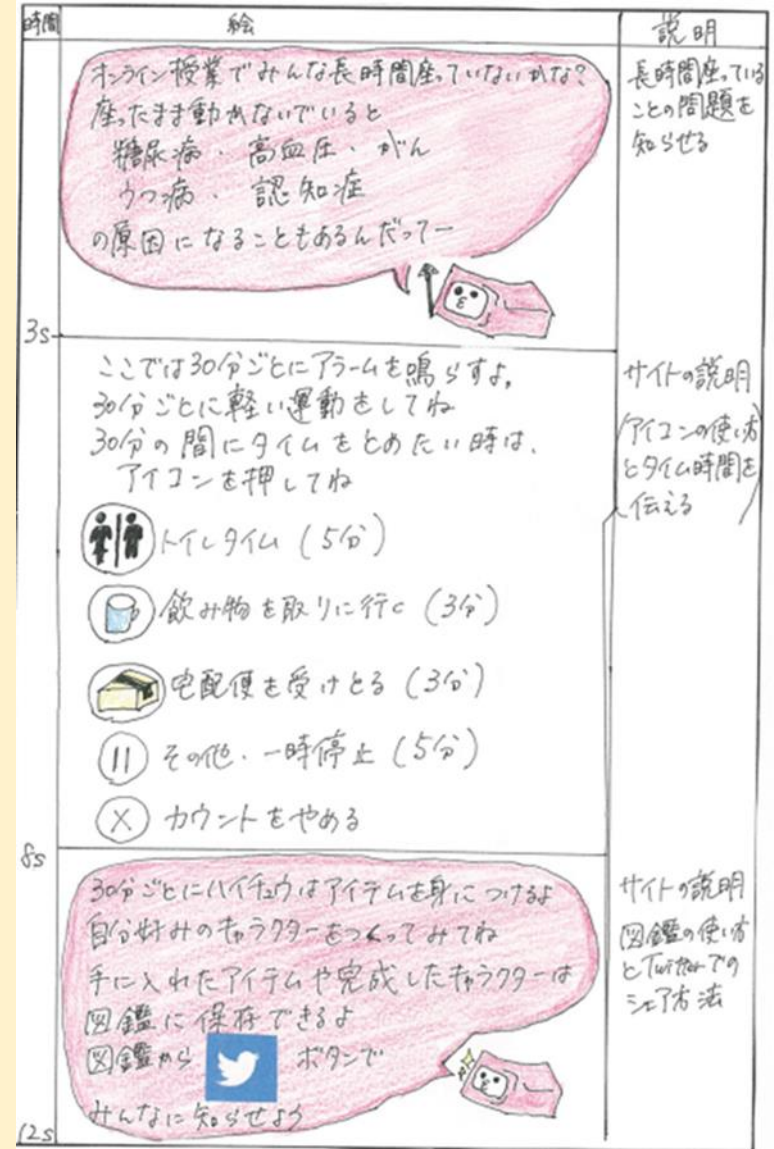 時間 絵 説明
オンライン授業でみんな長時間座っていないかな?
座ったまま動かないでいると
糖尿病・高血圧・がん
うつ病・認知症
の原因になることもあるんだってー
長時間座っている
ことの問題を
知らせる
3s
ここでは30分ごとにアラームを鳴らすよ。
30分ごとに軽い運動をしてね
30分の間にタイムをとめたい時は、
アイコンを押してね
トイレタイム(5分)
飲み物を取りに行く(3分)
宅配便を受けとる(3分)
その他・一時停止(5分)
カウントをやめる
サイトの説明
(アイコンの使い方
とタイム時間を
伝える)
8s
30分ごとにハイチュウはアイテムを身につけるよ
自分好みのキャラクターをつくってみてね
手に入れたアイテムや完成したキャラクターは
図鑑に保存できるよ
図鑑から ボタンで
みんなに知らせよう
サイトの説明
図鑑の使い方
とTwitterでの
シェア方法
12s